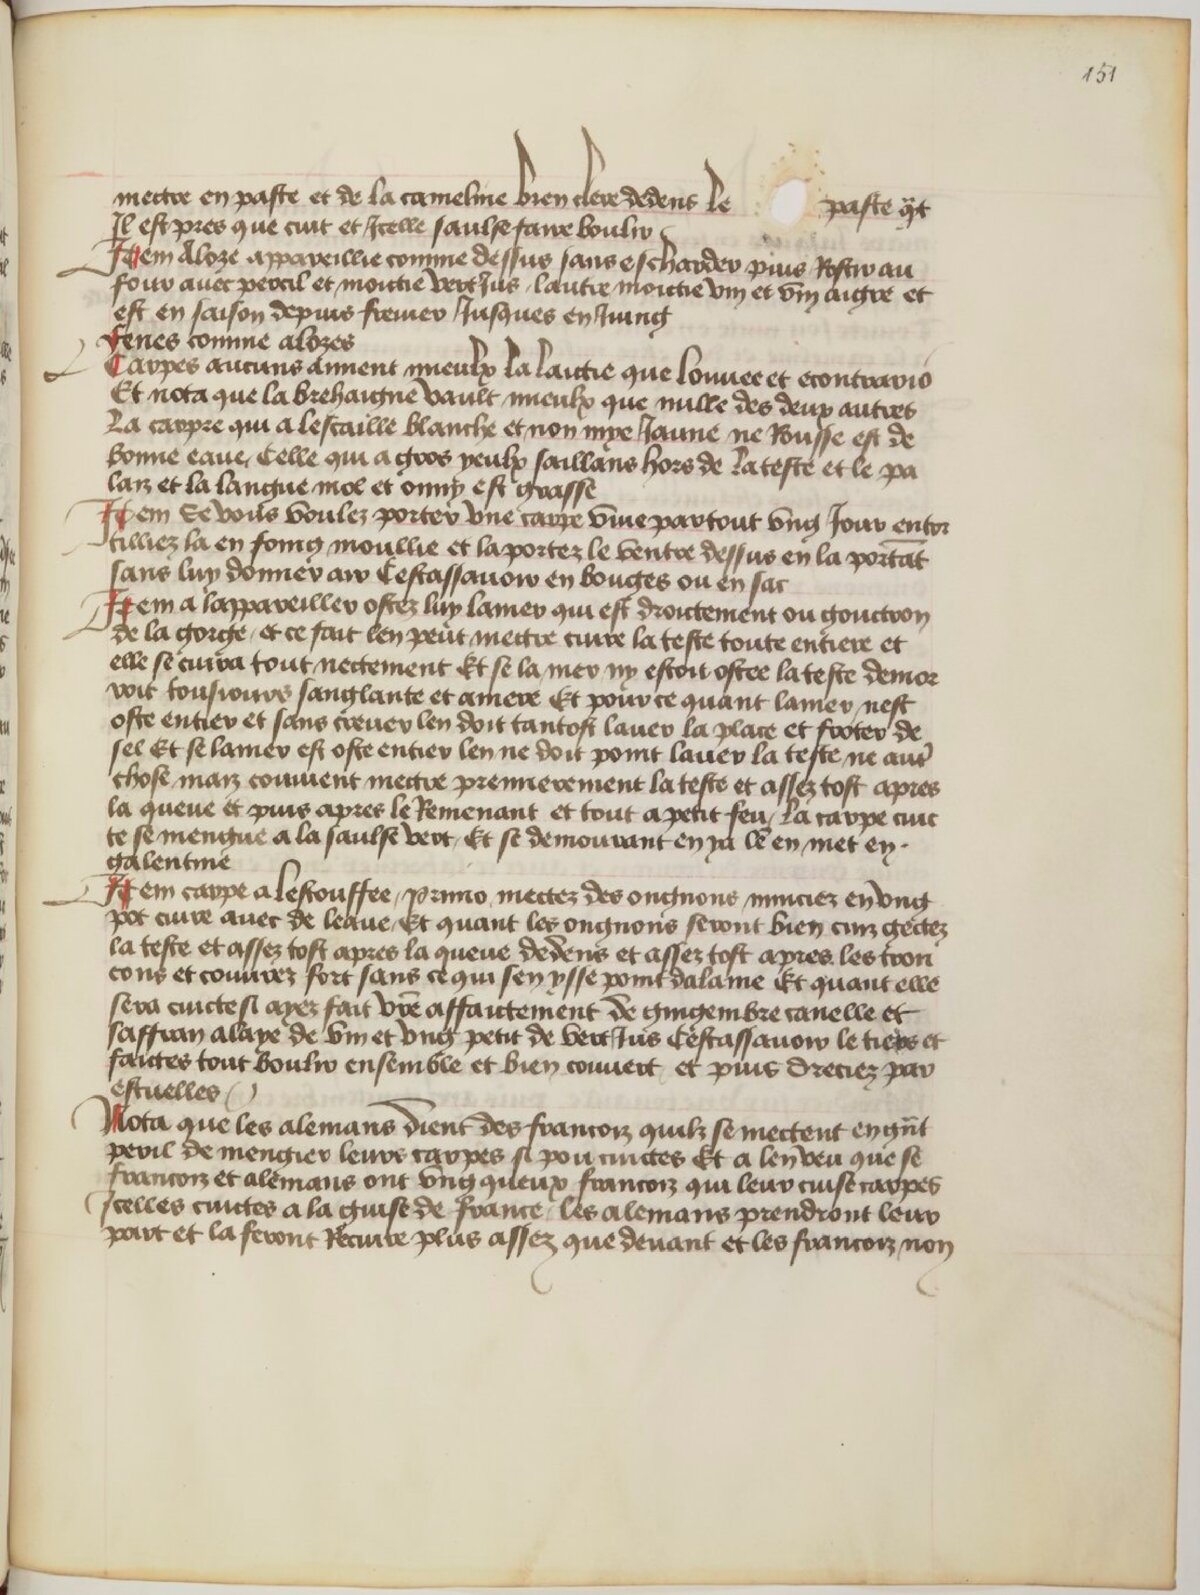 151
mectre en paste et de la cameline bien clere dedens le paste q̃t
Il est pres que cuit et Icelle saulse faire boulir
Item Aloze appareillie comme dessus sans escharder puis Rostir au
four avec percil et moictie vertius lautre moictie vin et vin aigre et
est en saison depuis fevrier Jusques en Juing
Fenes comme alozes
Carpes aucuns aiment mieulx la laictie que louvee et econtrario
Et nota que la brehaigne vault mieulx que nulle des deux autres
La carpe qui a lescaille blanche et non mye Jaune ne Rousse est de
bonne eaue, Celle qui a gros yeulx saillans hors de la teste et le pa
laiz et la langue mol et onny est grasse
Item Se vous voulez porter une carpe vive par tout ung Jour entor
tilliez la en foing moullie et la portez le ventre dessus en la portãt
sans luy donner air Cestassavoir en bouges ou en sac
Item a lappareiller ostez luy lamer qui est droictement ou gouctron
de la gorge, et ce fait len peut mectre cuire la teste toute entiere et
elle se cuira tout nectement Et se lamer ny estoit ostee la teste demor
roit tousiours sanglante et amere Et pour ce quant lamer nest
oste entier et sans crever len doit tantost laver la place et froter de
sel Et se lamer est oste entier len ne doit point laver la teste ne autʳ
chose maiz couvient mectre premierement la teste et assez tost apres
la queue et puis apres le Remenant et tout a petit feu, La carpe cuic
te se mengue a la saulse vert, Et se demourant en ya lẽ en met en
galentine
Item carpe a lestouffee, primo mectez des ongnons minciez en ung
pot cuire avec de leaue, Et quant les ongnons seront bien cuiz gectez
la teste et assez tost apres la queue dedens et assez tost apres les tron
cons et couvrez fort sans ce qui sen ysse point dalaine Et quant elle
sera cuicte si ayez fait vr̃e affaictement de gingembre canelle et
saffran alaye de vin et ung petit de vertius Cestassavoir le tiers et
faictes tout boulir ensemble et bien couvert, et puis dreciez par
escuelles
Nota que les alemans dient des francoiz quilz se mectent en gñt
peril de mengier leurs carpes si pou cuictes Et a len veu que se
francoiz et alemans ont ung queux francoiz qui leur cuise carpes
Icelles cuictes a la guise de france, les alemans prendront leur
part et la feront Recuire plus assez que devant et les francoiz non